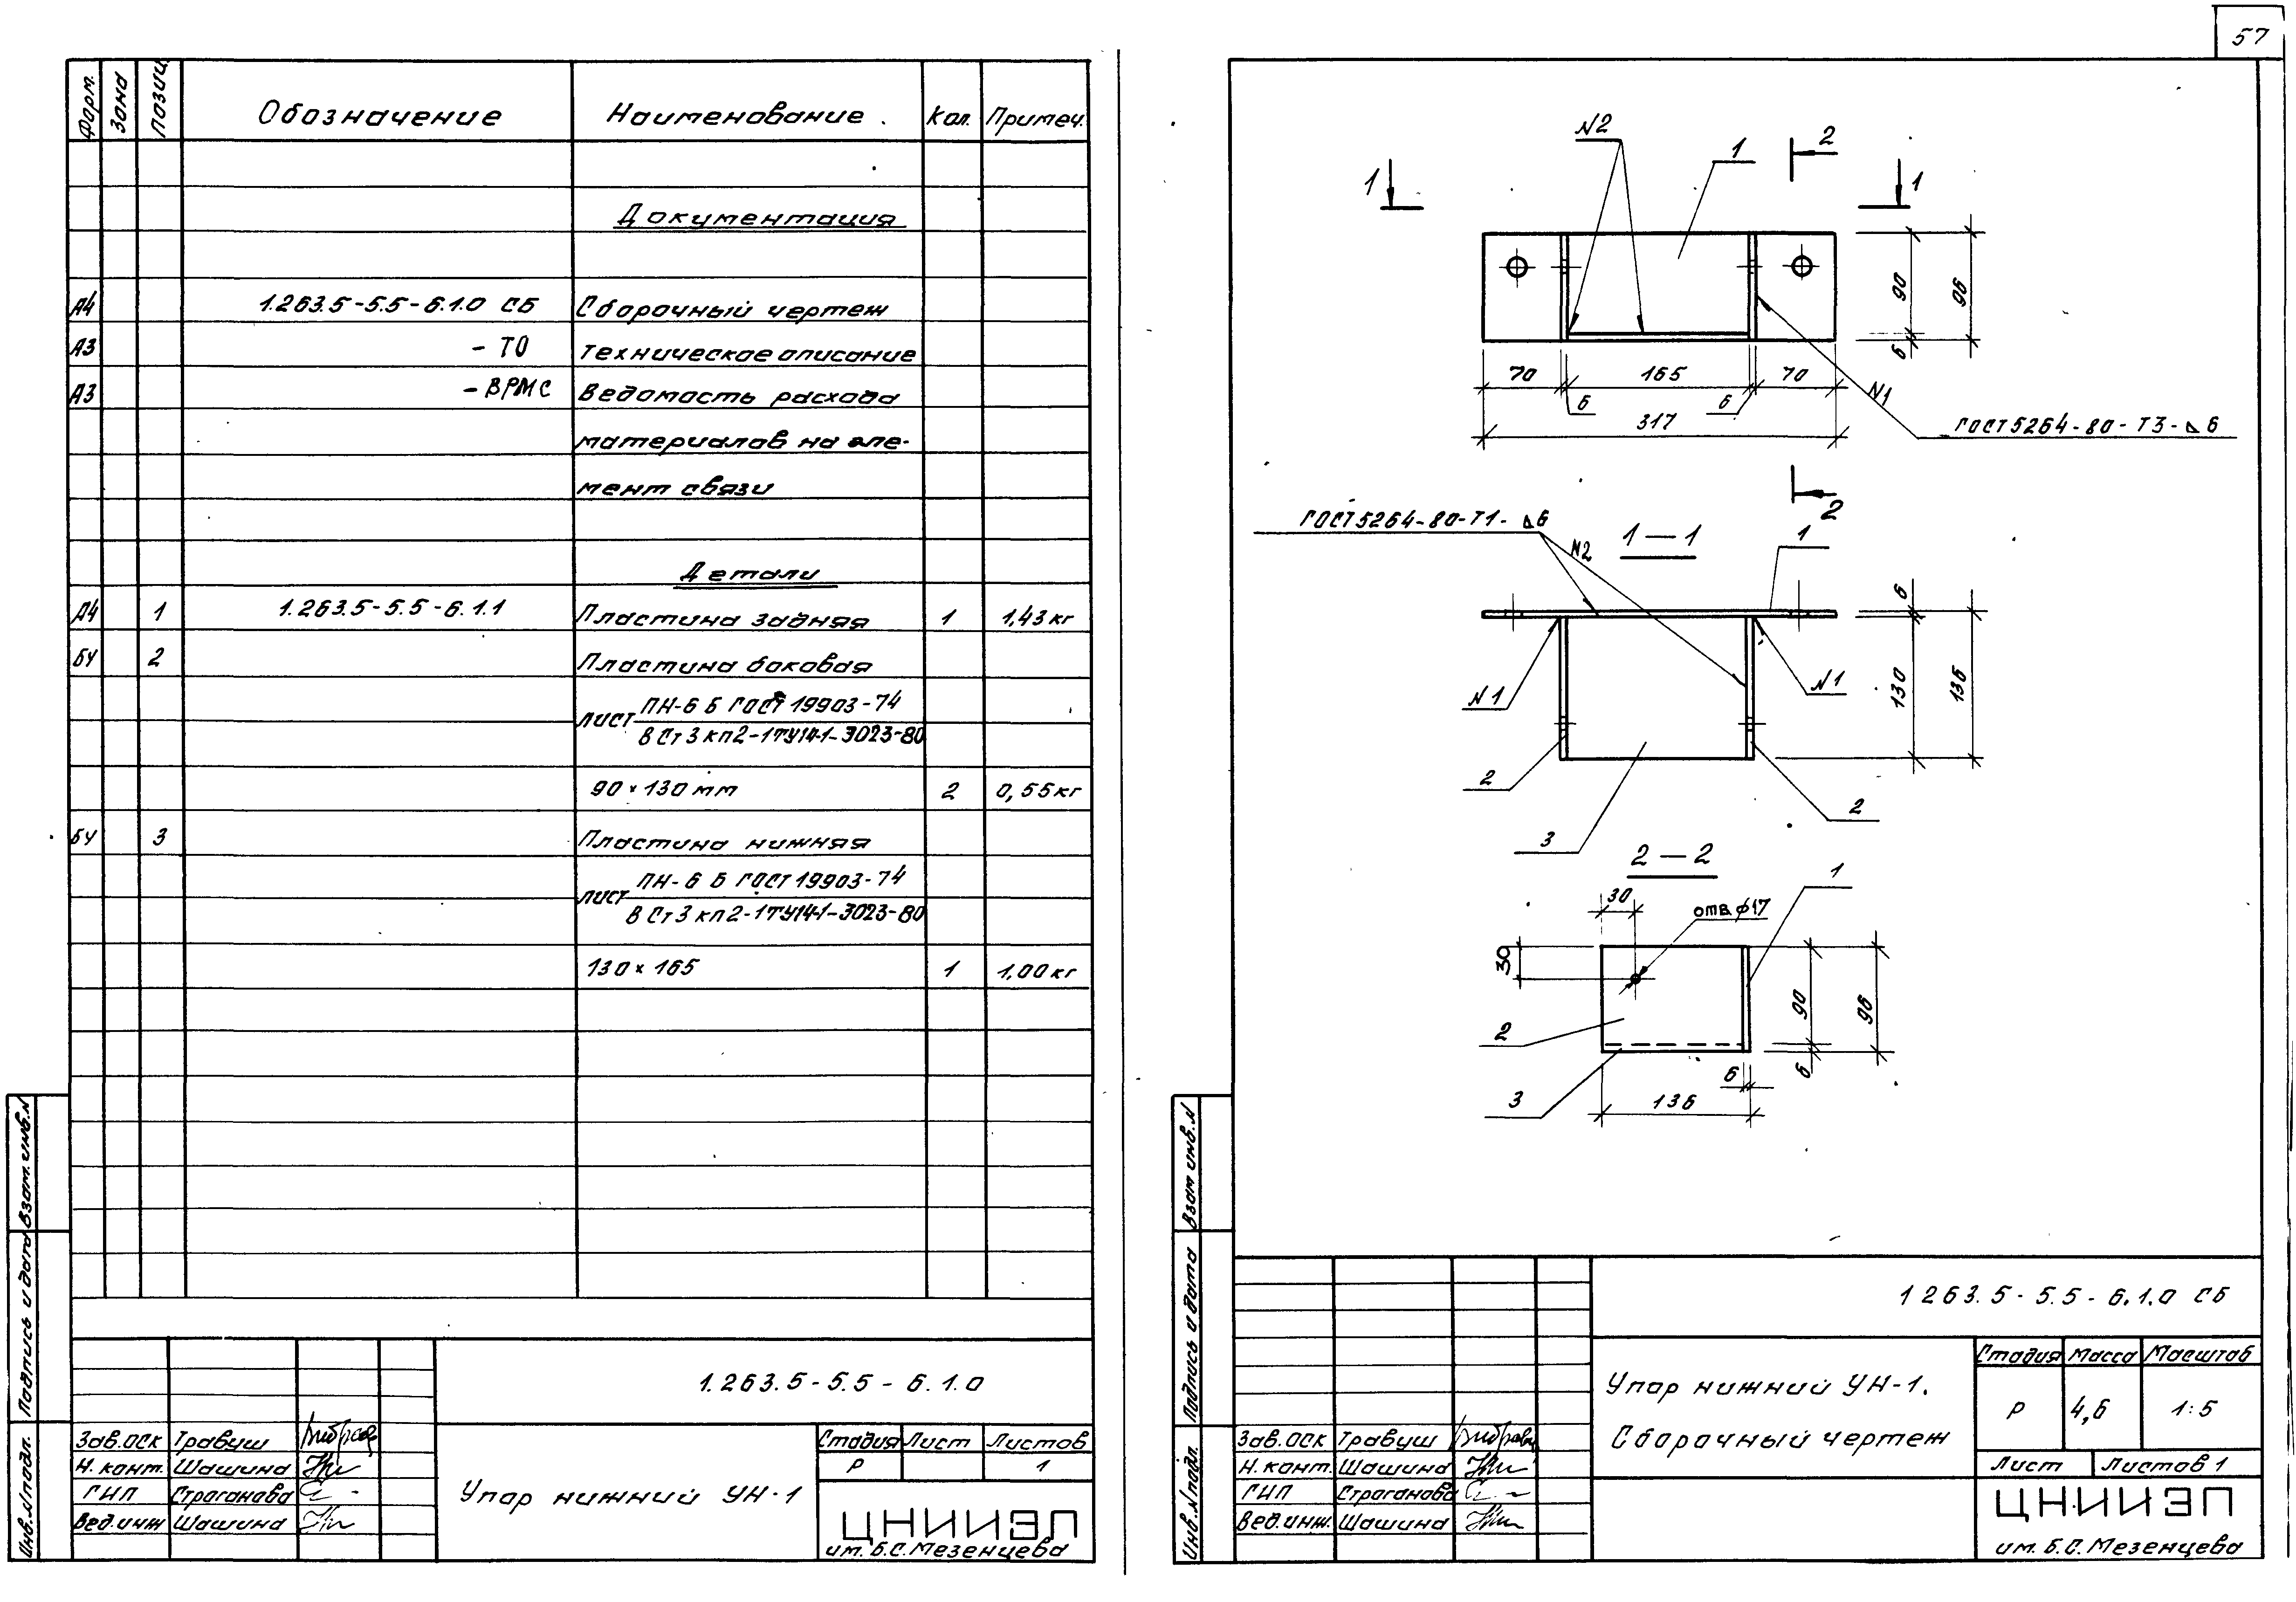 57
Форм.
Зона
Позиц.
Обозначение
Наименование
Кол.
Примеч.
Документация
А4 1.263.5-5.5-6.1.0 СБ Сборочный чертеж
А3 - ТО Техническое описание
А3 - ВРМС Ведомость расхода
материалов на эле-
мент связи
Детали
А4 1 1.263.5-5.5-6.1.1 Пластина задняя 1 1,43кг
БЧ 2 Пластина боковая
Лист ПН-6 Б ГОСТ 19903-74
В Ст3 кп2-1ТУ14-1-3023-80
90×130 мм 2 0,55кг
БЧ 3 Пластина нижняя
Лист ПН-6 Б ГОСТ 19903-74
В Ст3 кп2-1ТУ14-1-3023-80
130×165 1 1,00кг
Взам. инв. N
Подпись и дата
Инв. N подл.
1.263.5-5.5-6.1.0
Зав.ОСК Травуш
Н. конт. Шашина
ГИП Строганова
Вед.инж Шашина
Упор нижний УН-1
Стадия Лист Листов
Р 1
ЦНИИЭП
им. Б.С. Мезенцева
N2
1
2
1
1
90
96
6
70
165
70
6
6
317
N1
ГОСТ 5264-80-Т3-⊿6
2
ГОСТ 5264-80-Т1-⊿6
N2
1—1
1
6
130
136
N1
N1
2
2
3
2—2
1
30
отв. ф17
30
90
96
6
2
6
3
136
Взам инв. N
Подпись и дата
Инв. N подл.
1.263.5-5.5-6.1.0 СБ
Упор нижний УН-1.
Сборочный чертеж
Стадия Масса Масштаб
Р 4,6 1:5
Лист Листов 1
Зав.ОСК Травуш
Н. конт. Шашина
ГИП Строганова
Вед.инж. Шашина
ЦНИИЭП
им. Б.С. Мезенцева